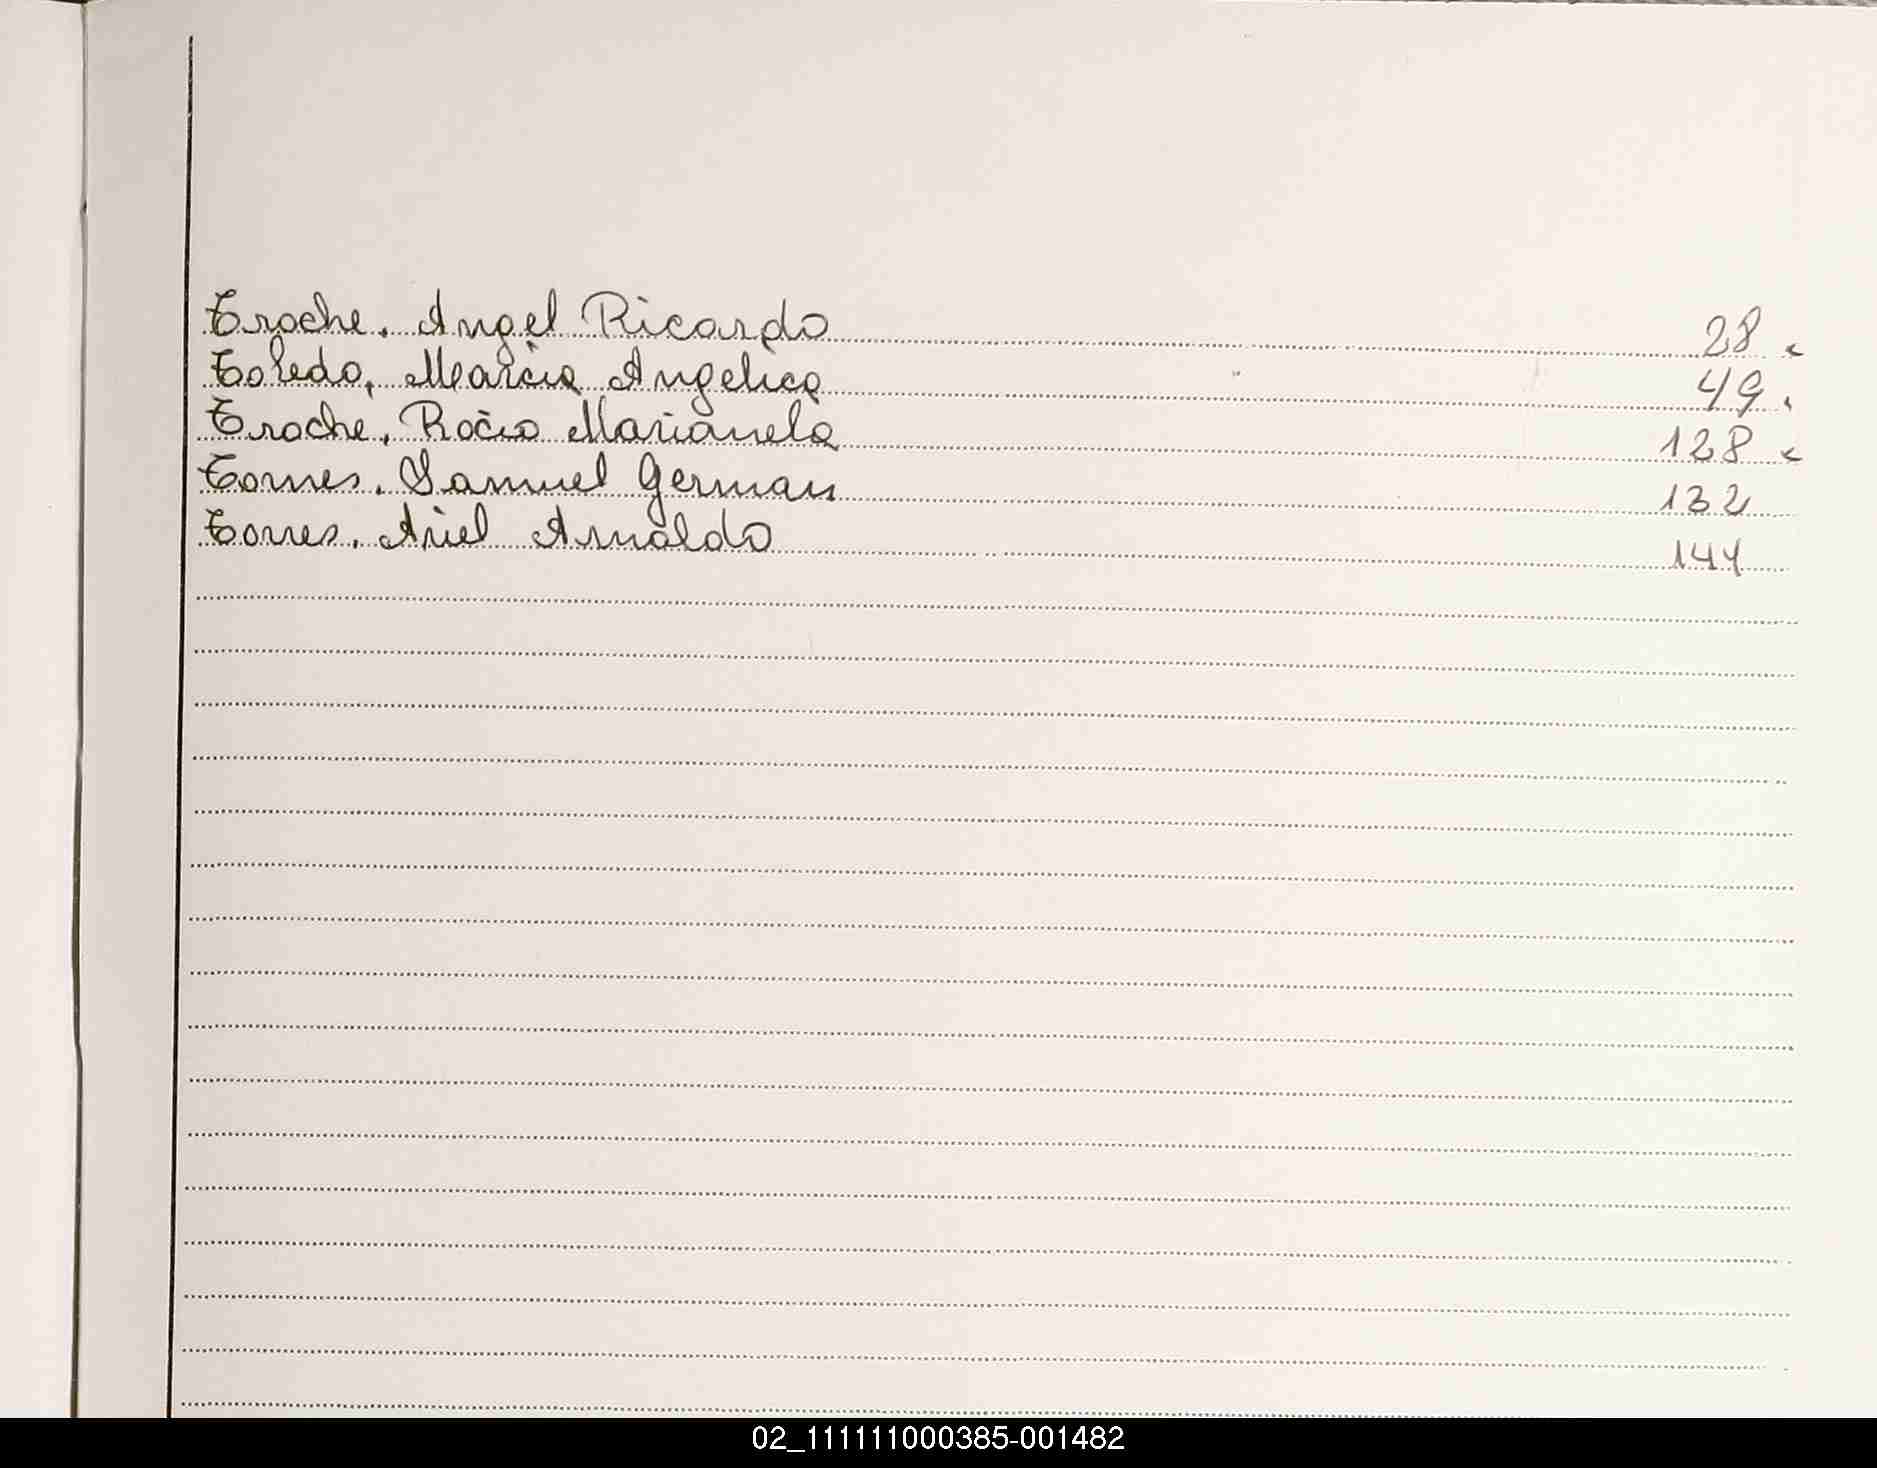 Troche, Angel Ricardo 28
Toledo, Marcia Angelica 49
Troche, Rocio Marianela 128
Torres, Samuel German 132
Torres, Ariel Arnaldo 144
02_111111000385-001482